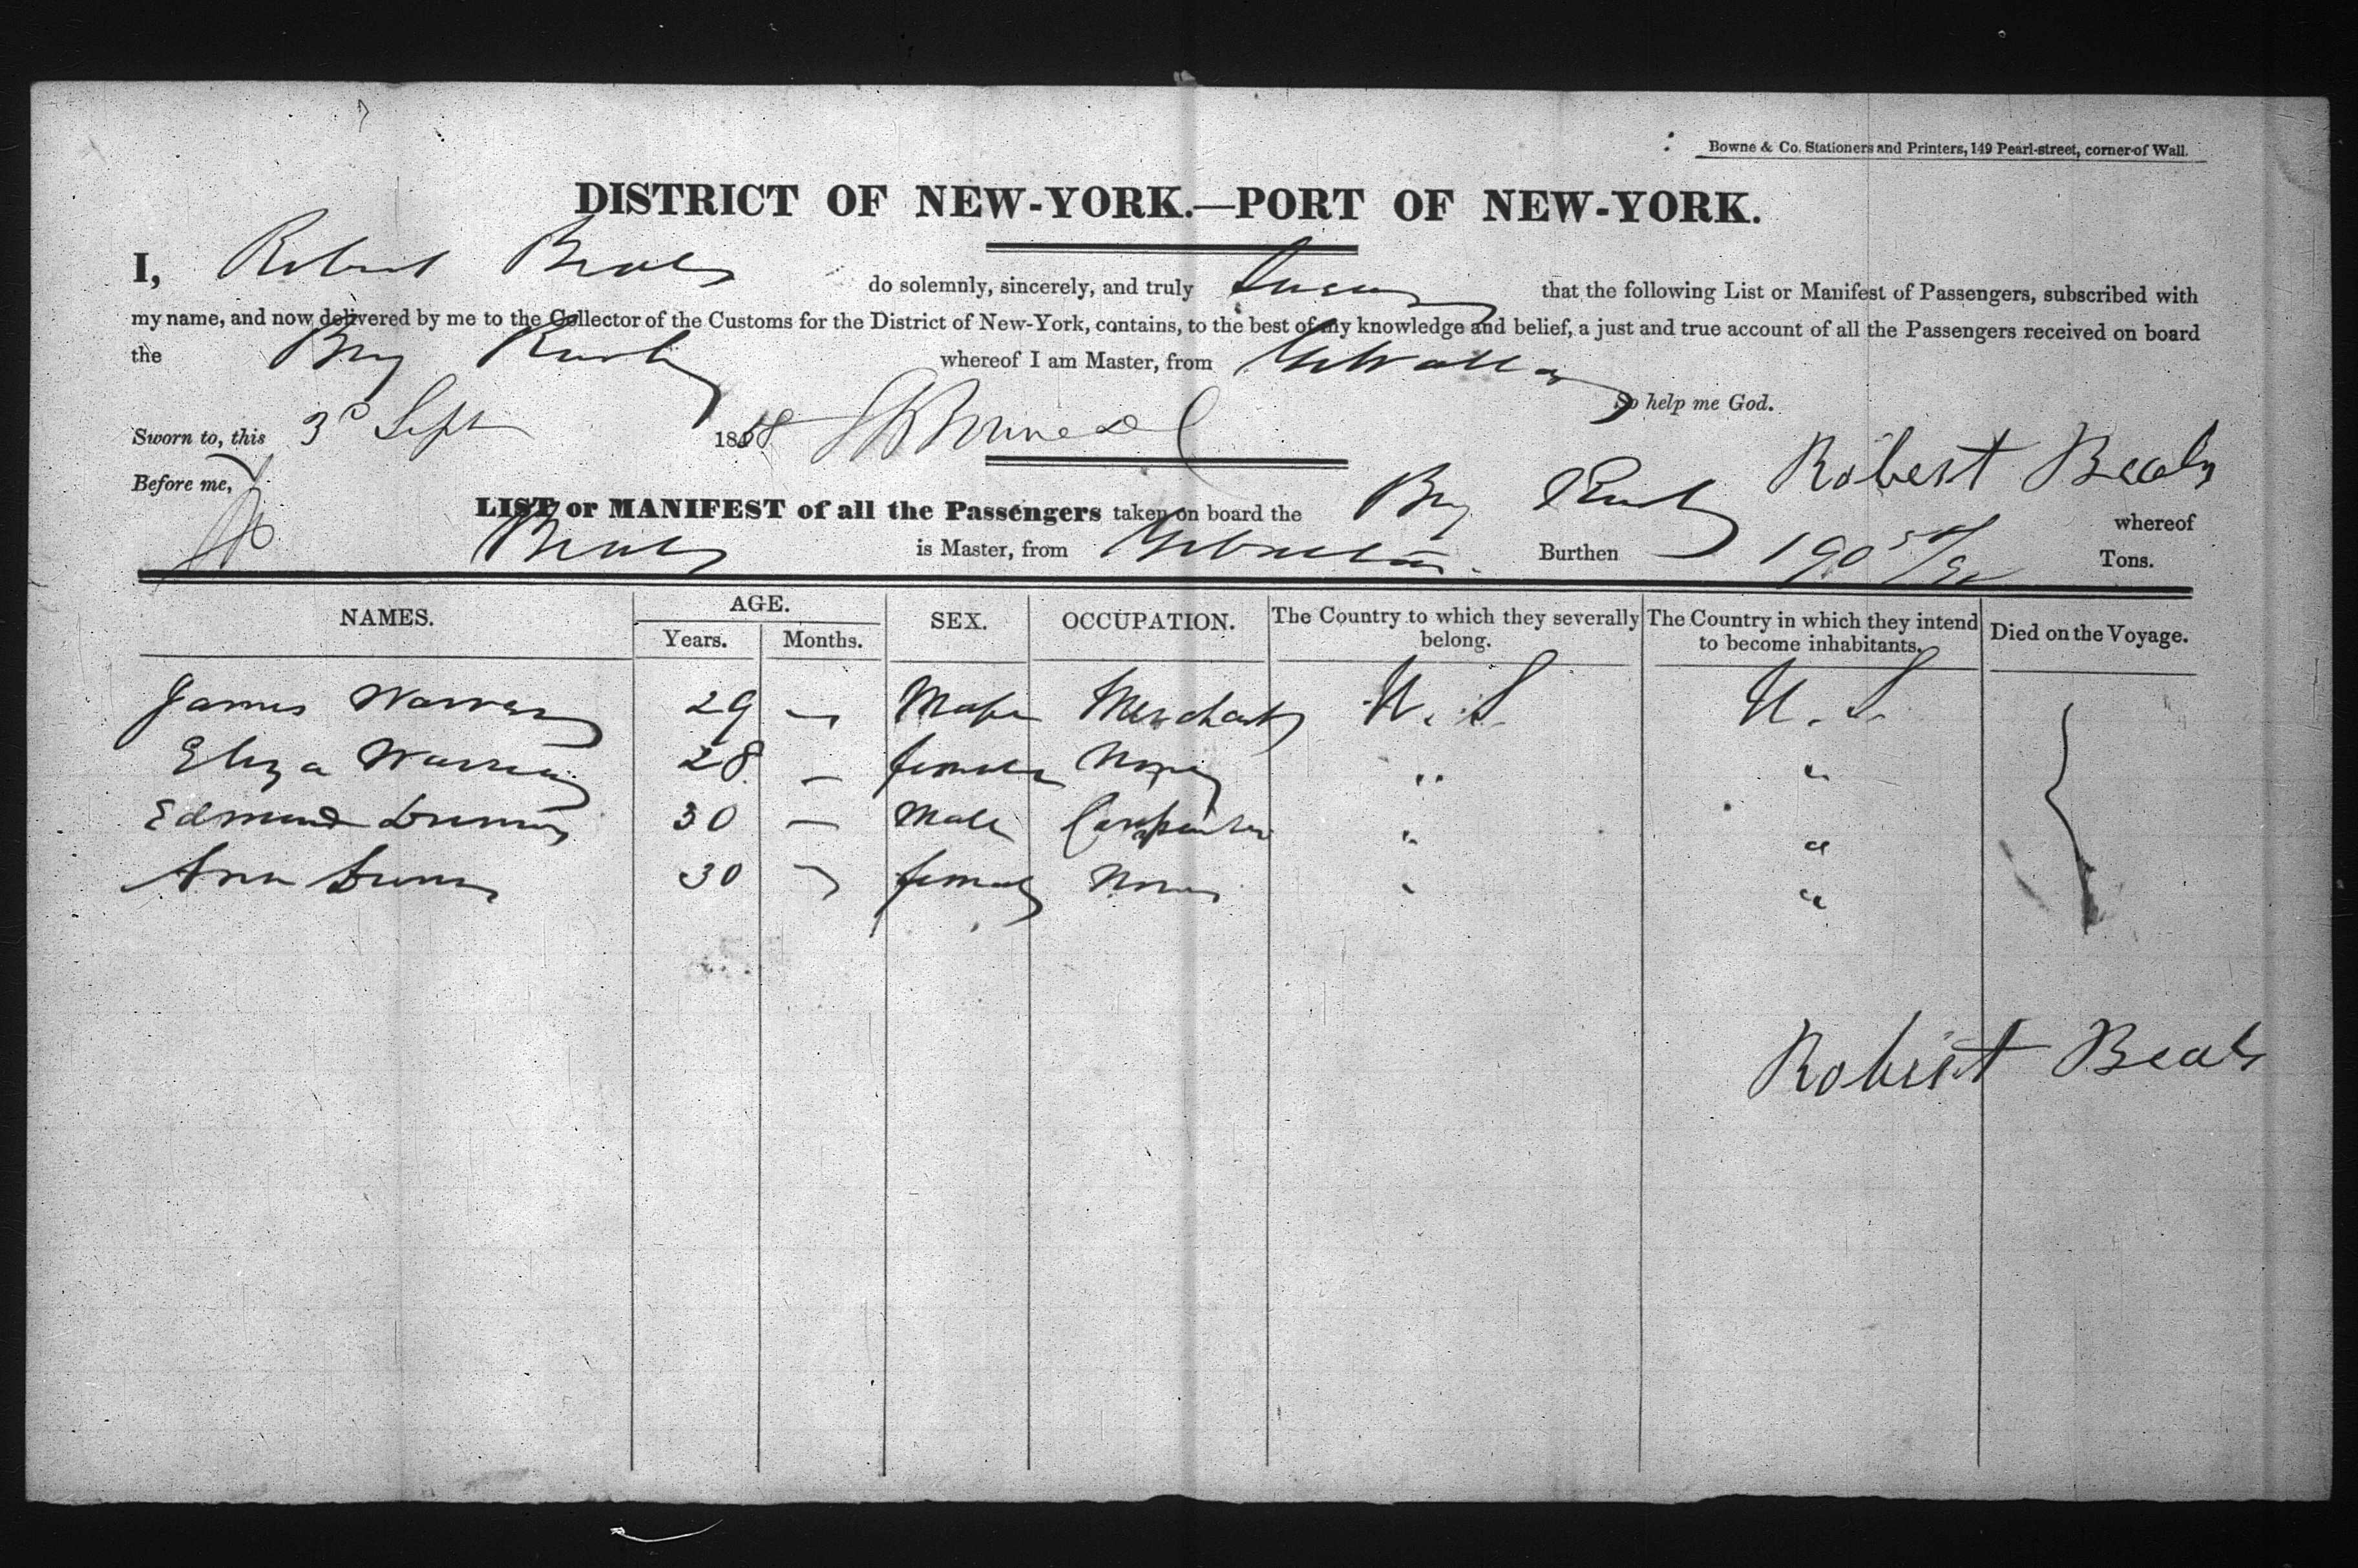 Bowne & Co. Stationers and Printers, 149 Pearl-street, corner of Wall.
DISTRICT OF NEW-YORK.—PORT OF NEW-YORK.
I, Robert Beals do solemnly, sincerely, and truly swear that the following List or Manifest of Passengers, subscribed with
my name, and now delivered by me to the Collector of the Customs for the District of New-York, contains, to the best of my knowledge and belief, a just and true account of all the Passengers received on board
the Brig whereof I am Master, from Gibraltar
So help me God.
Sworn to, this 3d Sept 1848
Robert Beals
Before me,
LIST or MANIFEST of all the Passengers taken on board the Brig whereof
Beals is Master, from Gibraltar Burthen 190 Tons.
NAMES. AGE. SEX. OCCUPATION. The Country to which they severally belong. The Country in which they intend to become inhabitants. Died on the Voyage.
Years. Months.
James Warren 29 — Male Merchant U. S. U. S.
Eliza Warren 28 — female None " "
Edmund 30 — Male Carpenter " "
Ann 30 — female None " "
Robert Beals